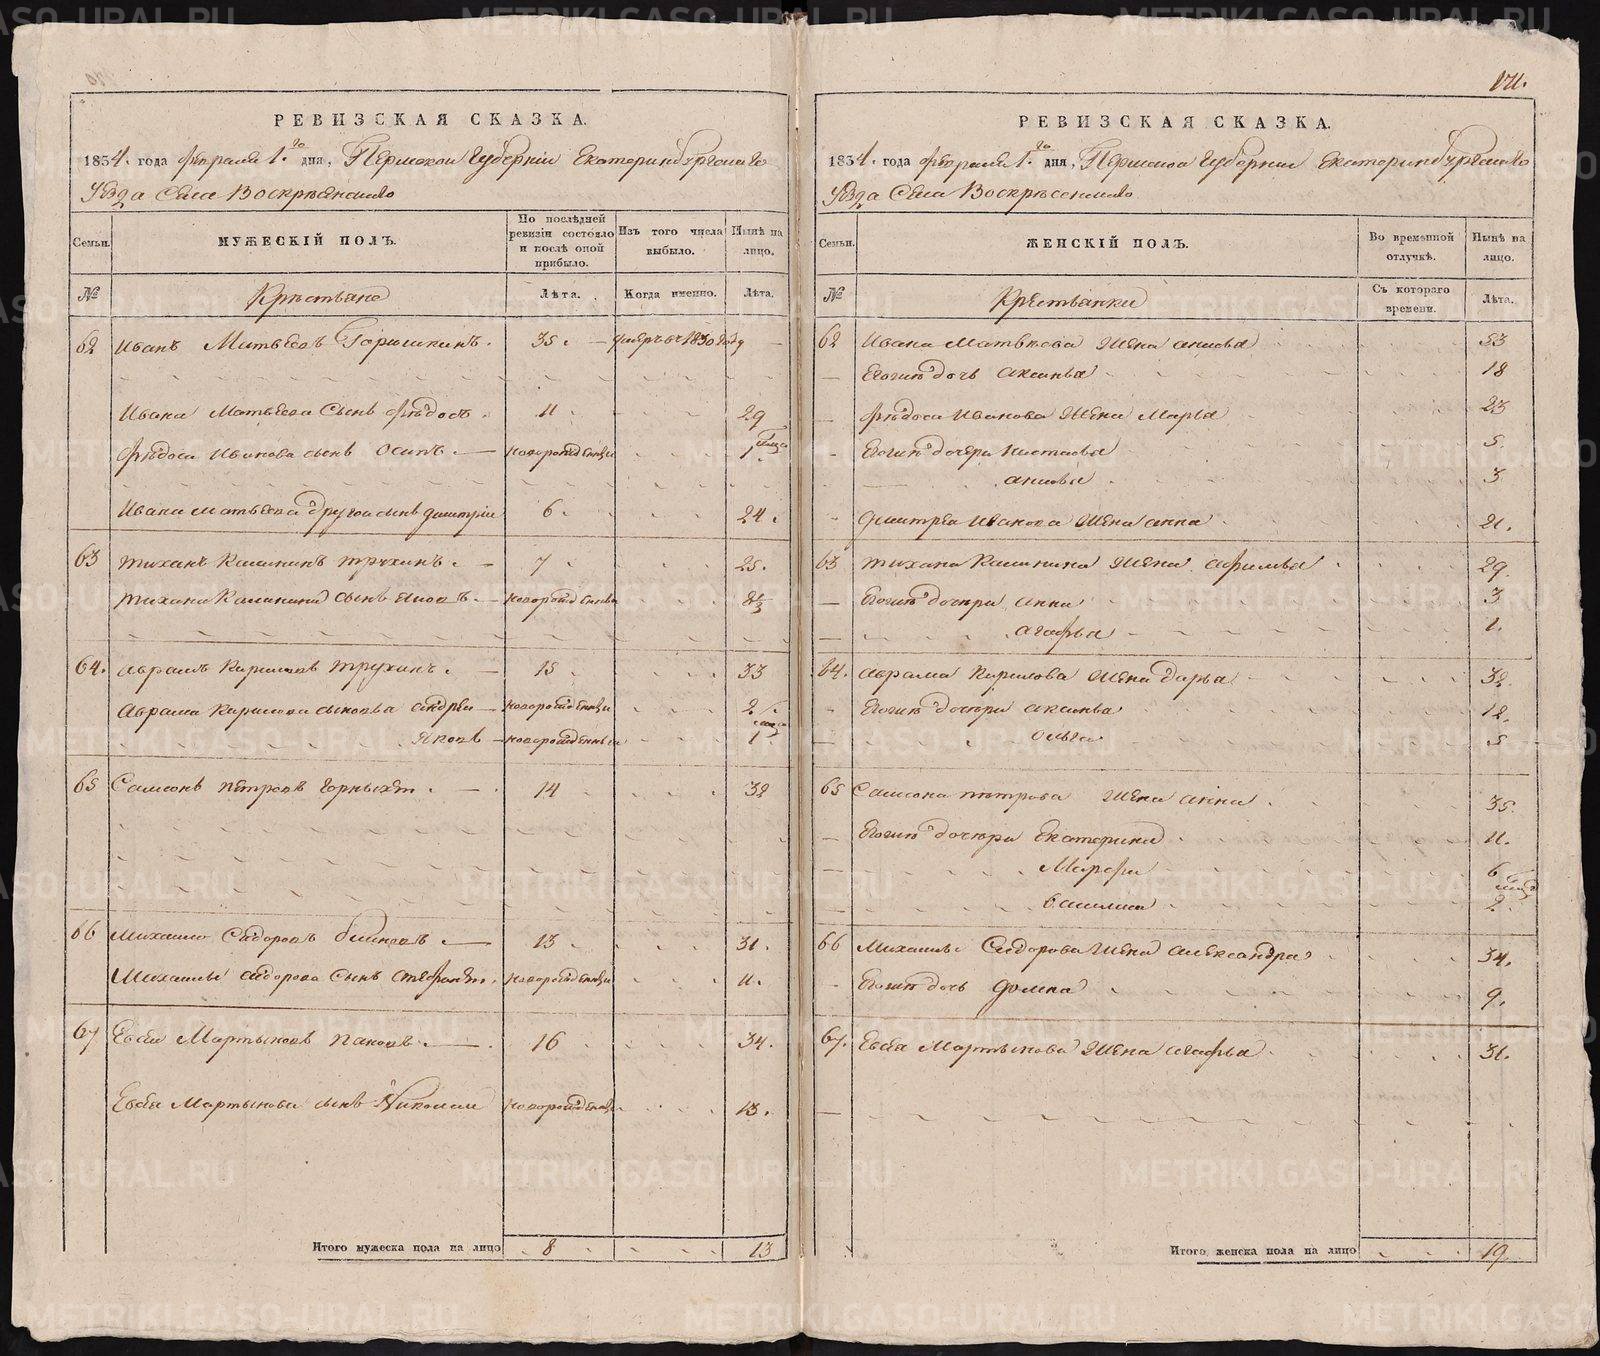 171.
РЕВИЗСКАЯ СКАЗКА.
1834. года февраля 1.го дня, Пермской Губернии Екатеринбургскаго
Уезда Села Воскресенскаго
Семьи.
МУЖЕСКІЙ ПОЛЪ.
По послѣдней ревизіи состояло и послѣ оной прибыло.
Изъ того числа выбыло.
Нынѣ на лицо.
№
Крестьяне
Лѣта.
Когда именно.
Лѣта.
62 Иванъ Матвеевъ Горюшкинъ. 35. умеръ въ 1830 году
Ивана Матвеева Сынъ Федосъ. 11 29
Федоса Иванова сынъ Осипъ. новорожденны 1
Ивана Матвеева другой сынъ Дмитрiи 6. 24.
63 Тиханъ Калининъ Трухинъ. 7 25.
Тихана Калинина сынъ Яковъ. новорожденны
64. Аврамъ Кириловъ Трухинъ. 15 33
Аврама Кирилова сыновья Андреи новорожденны 2
Яковъ новорожденны 1
65 Самсонъ Петровъ Горныхъ. 14 32
66 Михаило Сидоровъ 13 31.
Михаилы Сидорова Сынъ Стефанъ. новорожденны 11.
67 Евсеи Мартыновъ Пановъ. 16 34.
Евсея Мартынова сынъ Николаи новорожденны 13.
Итого мужеска пола на лицо 8 13
РЕВИЗСКАЯ СКАЗКА.
1834. года февраля 1.го дня, Пермской Губернии Екатеринбургскаго
Уезда Села Воскресенскаго
Семьи.
ЖЕНСКІЙ ПОЛЪ.
Во временной отлучкѣ.
Нынѣ на лицо.
№
Крестьянки
Съ котораго времени.
Лѣта.
62 Ивана Матвеева Жена Анисья 53
Егожъ дочь Аксинья 18
Федоса Иванова Жена Марья 23
Егожъ дочери Настасья 5.
Анисья 3
Дмитрея Иванова Жена Анна 21.
63 Тихана Калинина Жена Афимья 29.
Егожъ дочери Анна 3
Агафья 1.
64. Аврама Кирилова Жена Дарья 32.
Егожъ дочери Аксинья 12.
Ольга 5
65 Самсона Петрова Жена Анна 35.
Егожъ дочери Екатерина 11.
Марфа 6
Василиса 2
66 Михаилы Сидорова Жена Александра 34.
Егожъ дочь Домна 9.
67. Евсея Мартынова Жена Агафья 31.
Итого женска пола на лицо 19
METRIKI.GASO-URAL.RU